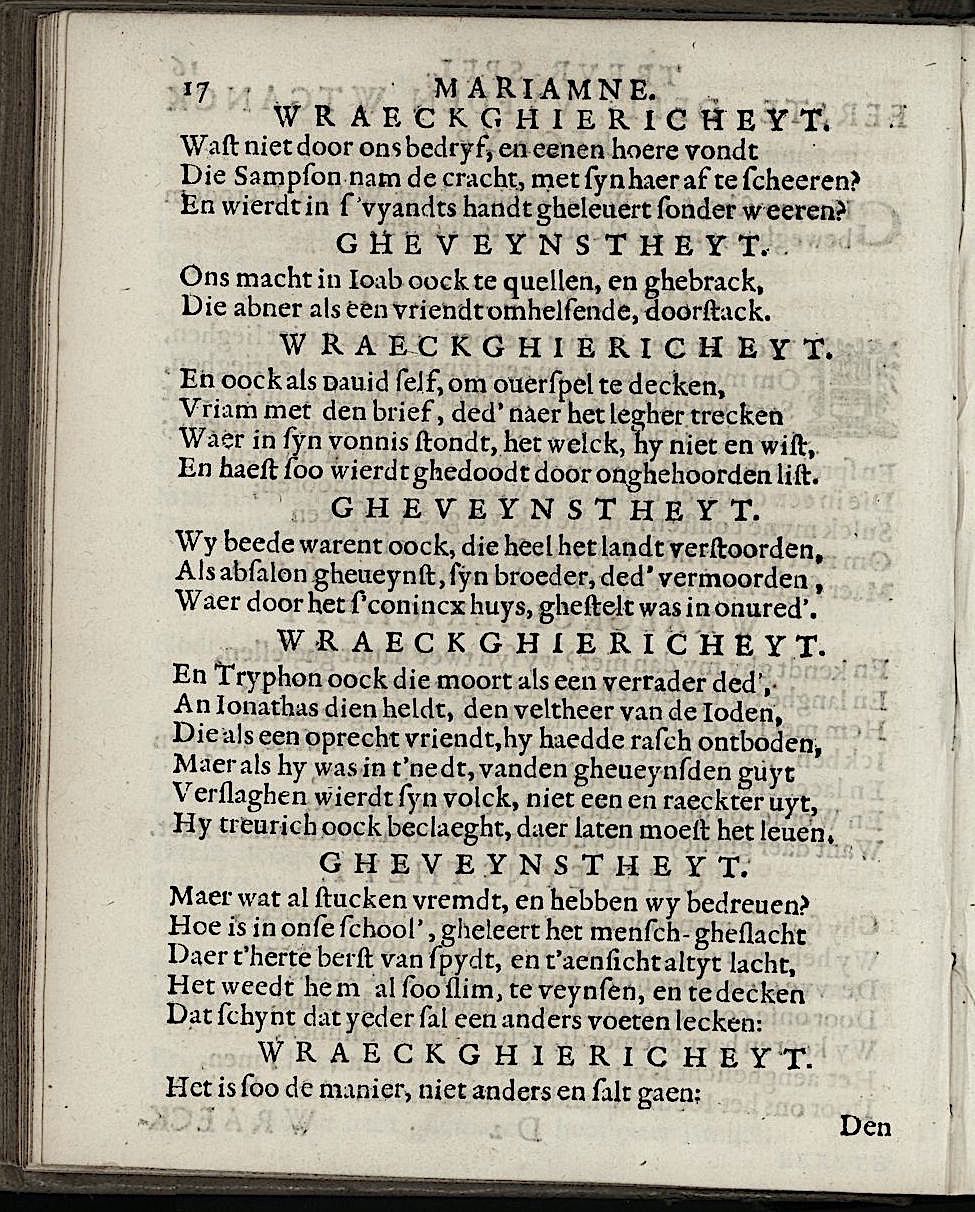 17 MARIAMNE.
WRAECKGHIERICHEYT.
Waſt niet door ons bedryf, en eenen hoere vondt
Die Sampſon nam de cracht, met ſyn haer af te ſcheeren?
En wierdt in ſ'vyandts handt gheleuert ſonder weeren?
GHEVEYNSTHEYT.
Ons macht in Ioab oock te quellen, en ghebrack,
Die abner als een vriendt omhelſende, doorſtack.
WRAECKGHIERICHEYT.
En oock als Dauid ſelf, om ouerſpel te decken,
Vriam met den brief, ded' naer het legher trecken
Waer in ſyn vonnis ſtondt, het welck, hy niet en wiſt,
En haeſt ſoo wierdt ghedoodt door onghehoorden liſt.
GHEVEYNSTHEYT.
Wy beede warent oock, die heel het landt verſtoorden,
Als abſalon gheueynſt, ſyn broeder, ded' vermoorden,
Waer door het ſ'conincx huys, gheſtelt was in onured'.
WRAECKGHIERICHEYT.
En Tryphon oock die moort als een verrader ded',
An Ionathas dien heldt, den veltheer van de Ioden,
Die als een oprecht vriendt, hy haedde raſch ontboden,
Maer als hy was in t'nedt, vanden gheueynſden guyt
Verſlaghen wierdt ſyn volck, niet een en raeckter uyt,
Hy treurich oock beclaeght, daer laten moeſt het leuen.
GHEVEYNSTHEYT.
Maer wat al ſtucken vremdt, en hebben wy bedreuen?
Hoe is in onſe ſchool', gheleert het menſch-gheſlacht
Daer t'herte berſt van ſpydt, en t'aenſicht altyt lacht,
Het weedt hem al ſoo ſlim, te veynſen, en te decken
Dat ſchynt dat yeder ſal een anders voeten lecken:
WRAECKGHIERICHEYT.
Het is ſoo de manier, niet anders en ſalt gaen:
Den